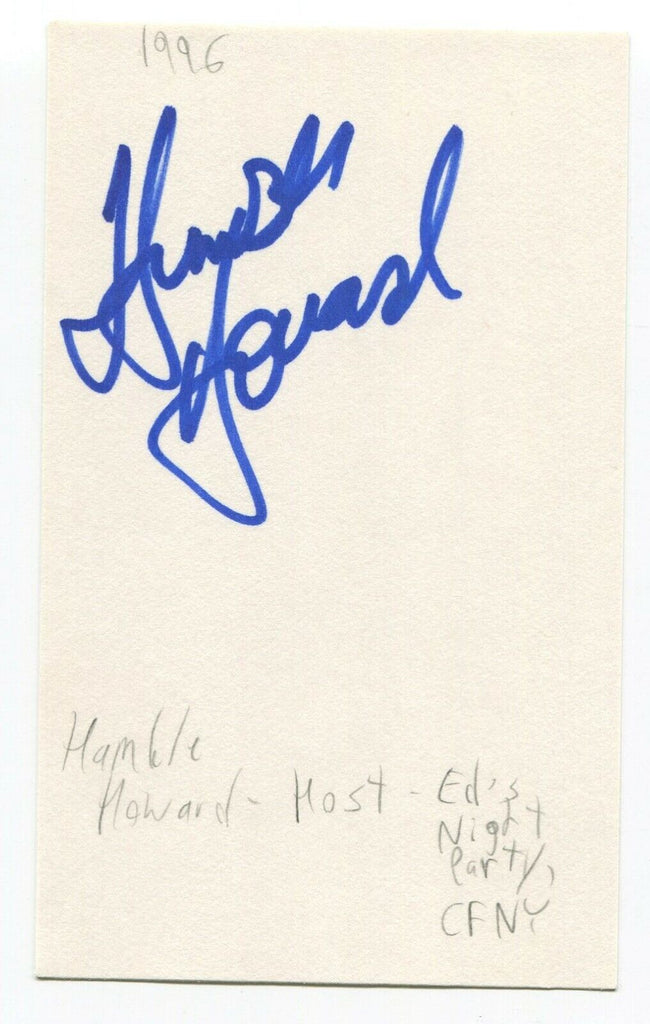 1996
Humble
Howard
Humble
Howard - Host - Ed's
Night
Party,
CFNY